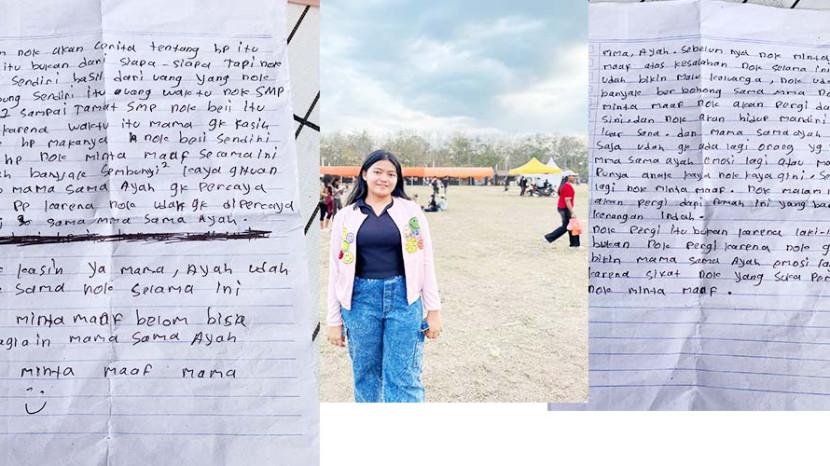 nok akan cerita tentang hp itu
itu bukan dari siapa-siapa tapi nok
sendiri hasil dari uang yang nok
sendiri itu uang waktu nok SMP
2 sampai Tamat SMP nok beli itu
karena waktu itu mama gk kasih
hp makanya nok beli sendiri
hp nok minta maaf selama ini
banyak sembunyi² kaya ginian
mama sama Ayah gk percaya
PP karena nok udah gk dipercaya
sama mma sama Ayah.
kasih ya mama, Ayah udah
sama nok selama ini
minta maaf belom bisa
mama sama Ayah
minta maaf mama
mma, Ayah. sebelum nya nok minta
maaf atas kesalahan nok selama ini
udah bikin malu keluarga, nok
banyak berbohong sama mma
minta maaf nok akan pergi da
sini. dan nok akan hidup mandiri
luar sana. dan mama sama ayah
saja udah gk ada lagi orang yg
mma sama ayah emosi lagi atau
Punya anak kaya nok kaya gini.
lagi nok minta maaf. nok malam
akan pergi dari rumah ini yang ba
kenangan indah.
nok pergi itu bukan karena laki-l
bukan nok pergi karena nok g
bikin mama sama Ayah emosi la
karena sifat nok yang suka
nok minta maaf.